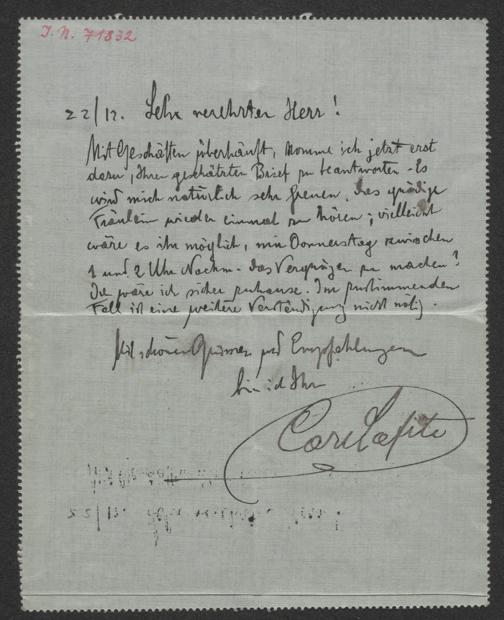 J. N. 71832
22/12. Sehr verehrter Herr!
Mit Geschäften überhäuft, komme ich jetzt erst
dazu, Ihren geschätzten Brief zu beantworten. Es
wird mich natürlich sehr freuen, das gnädige
Fräulein wieder einmal zu hören; vielleicht
wäre es ihr möglich, mir Donnerstag zwischen
1 und 2 Uhr Nachm. das Vergnügen zu machen?
Da wäre ich sicher zuhause. Im zustimmenden
Fall ist eine weitere Verständigung nicht nötig.
Mit schönen Grüssen und Empfehlungen
bin ich Ihr
Carl Lafite